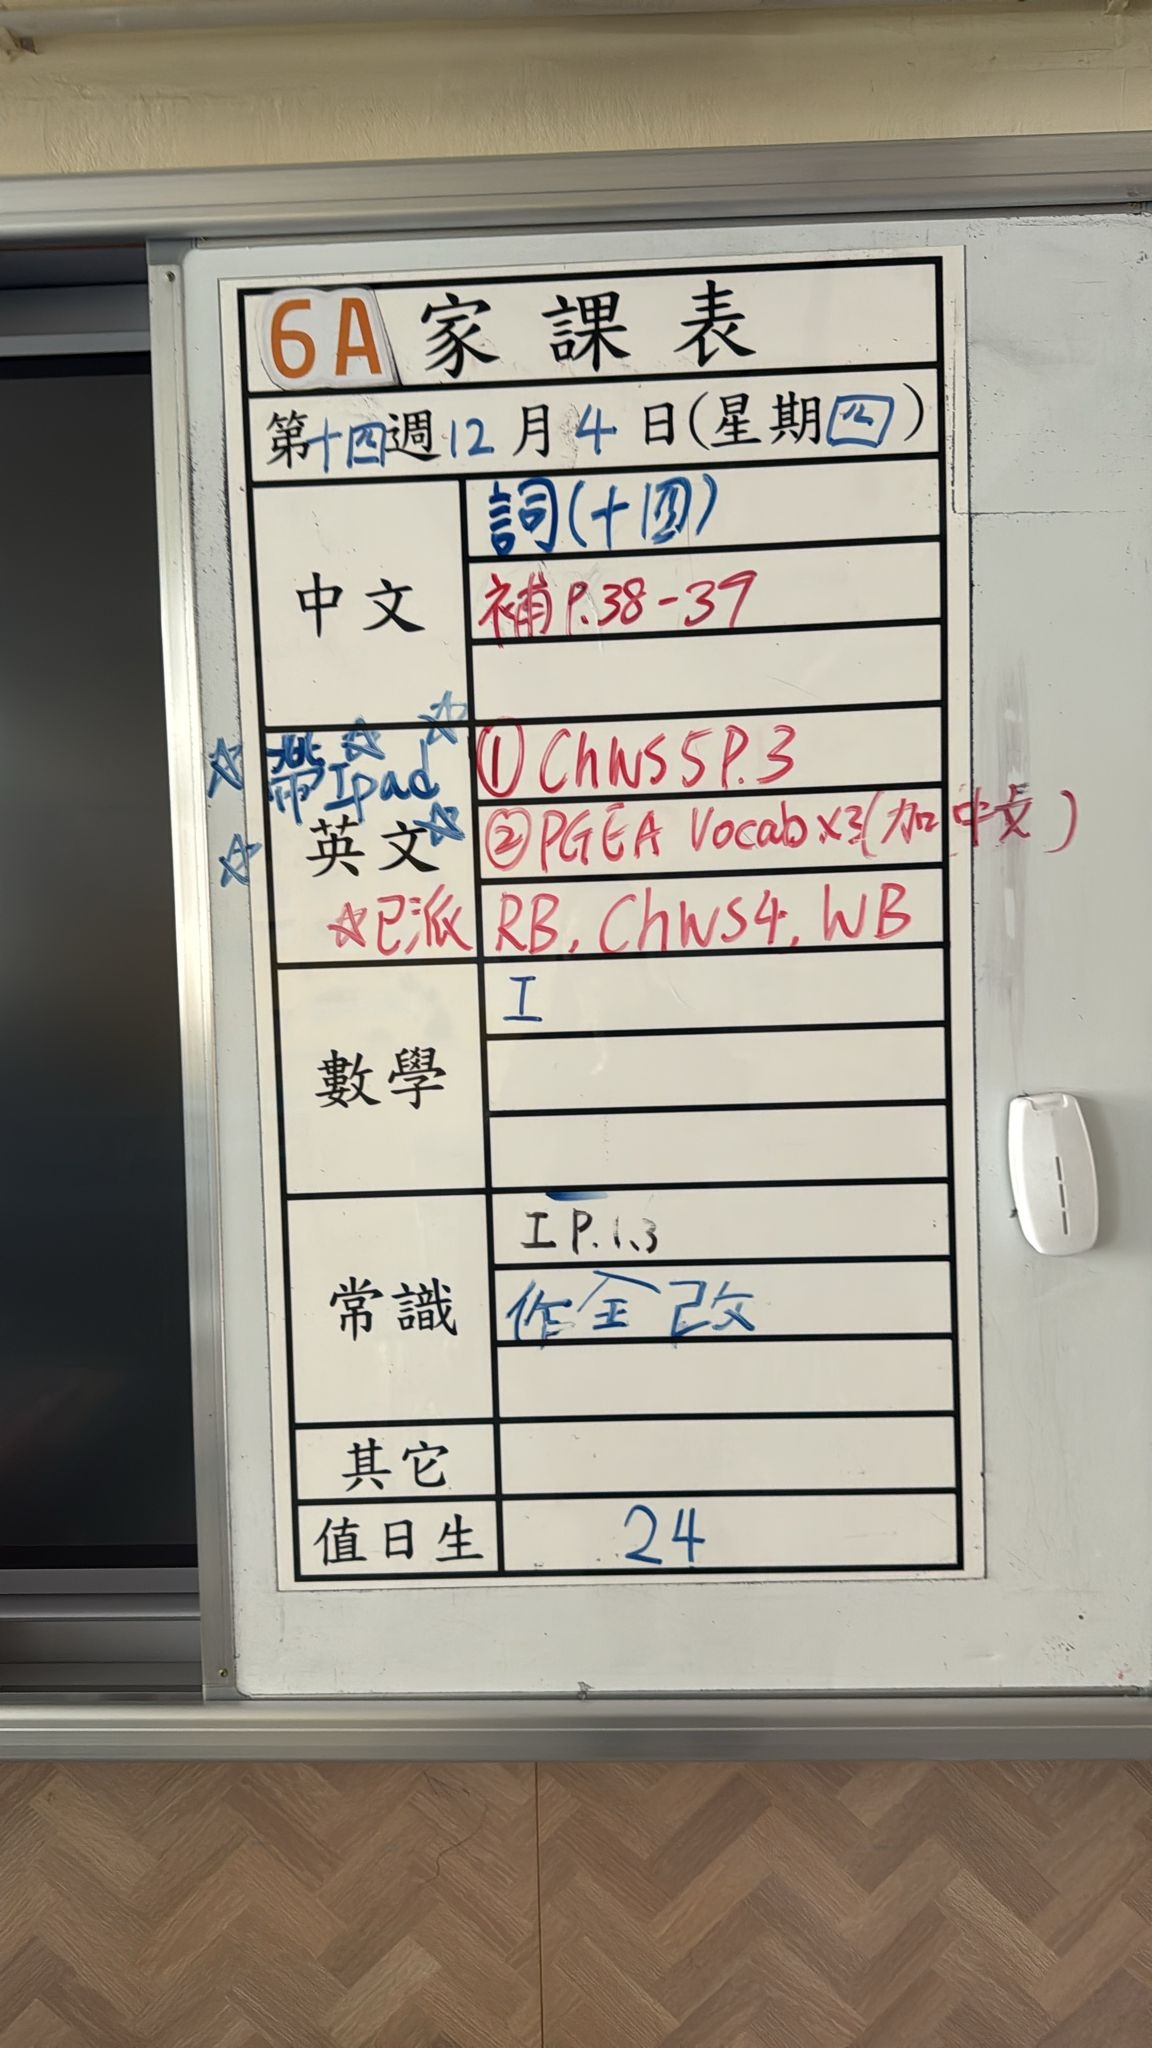 6A 家課表
第十四週12月4日(星期四)
中文
詞(十四)
補P.38-39
帶Ipad
英文
① ChWS5P.3
② PGEA Vocabx3(加中文)
☆已派 RB, ChWS4, WB
數學
I
常識
I P.1、3
作全改
其它
值日生 24